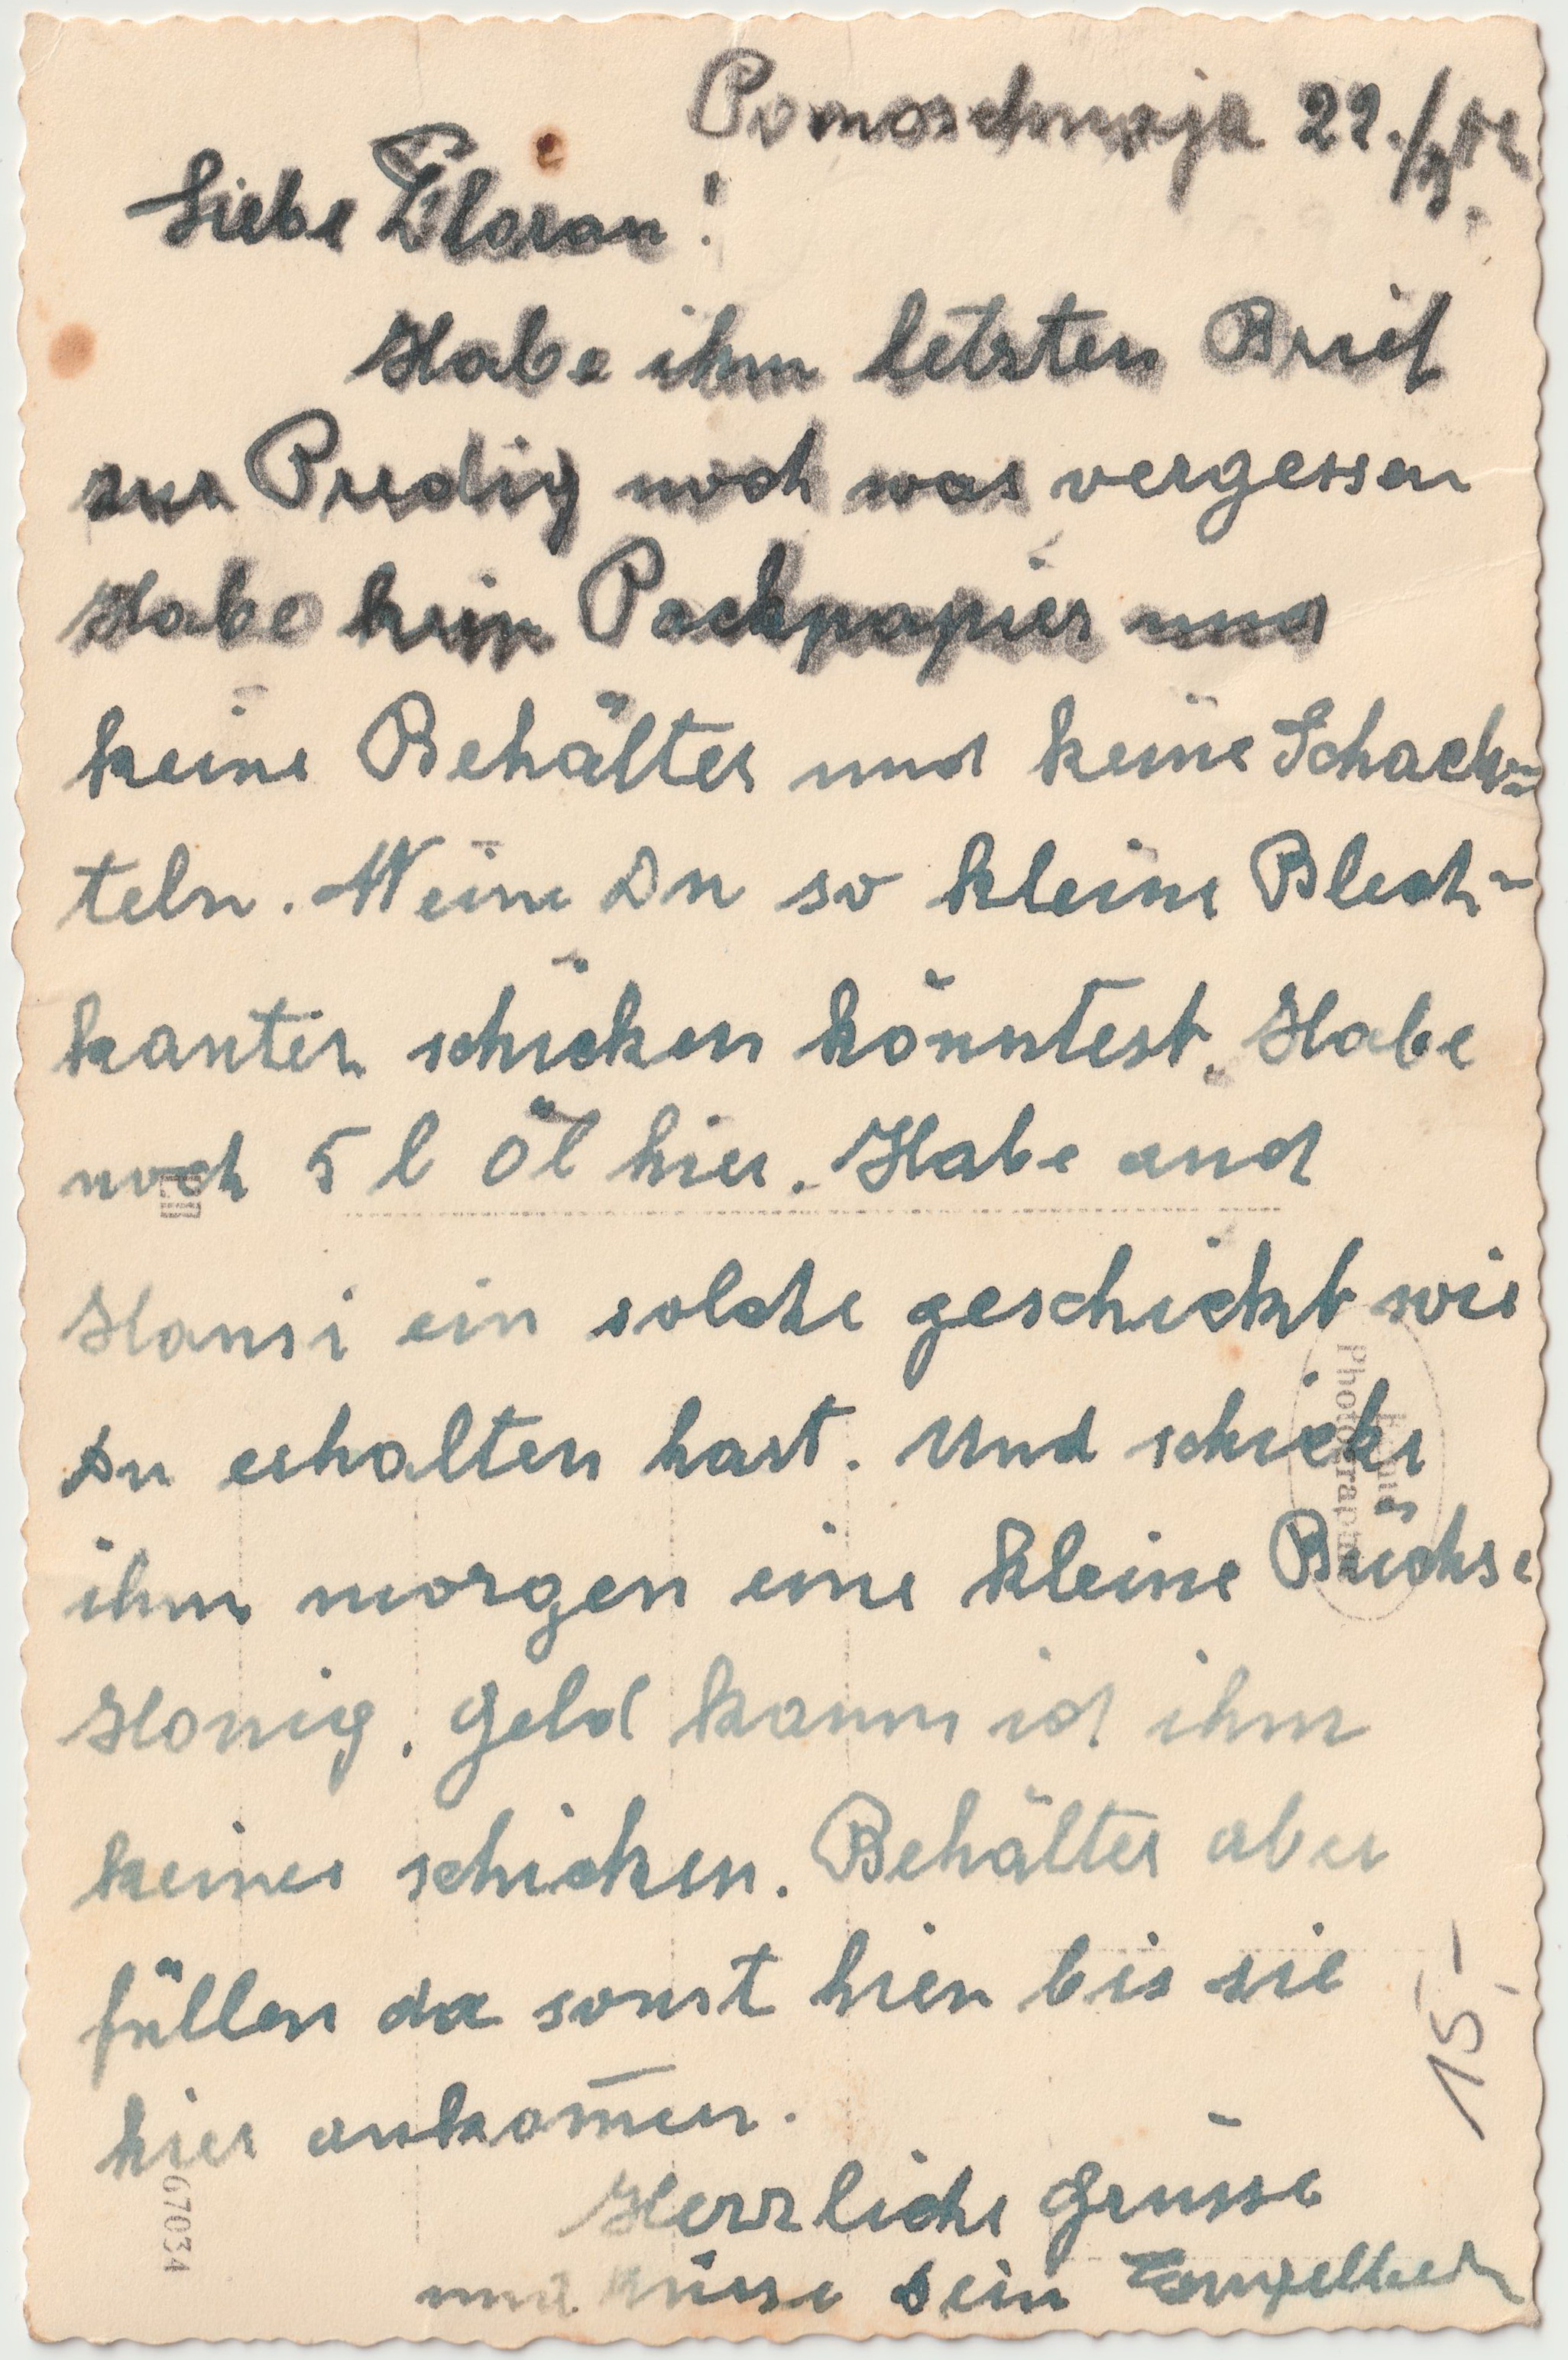 Pomoschnaja 22./9. 42
Liebe
Habe ihm letzten Brief
zur Predig noch was vergessen
Habe kein Packpapier und
keine Behälter und keine Schach=
teln. Wenn Du so kleine Blech-
kanter schicken könntest. Habe
noch 5 l Öl hier. Habe auch
Hansi ein solche geschickt wie
Du erhalten hast. Und schicke
ihm morgen eine kleine Büchse
Honig. Geld kann ich ihm
keines schicken. Behälter aber
füllen da sonst hier bis sie
hier ankom̄en.
Herzliche Grüsse
und Küsse Dein
Photographie
67034
15,-